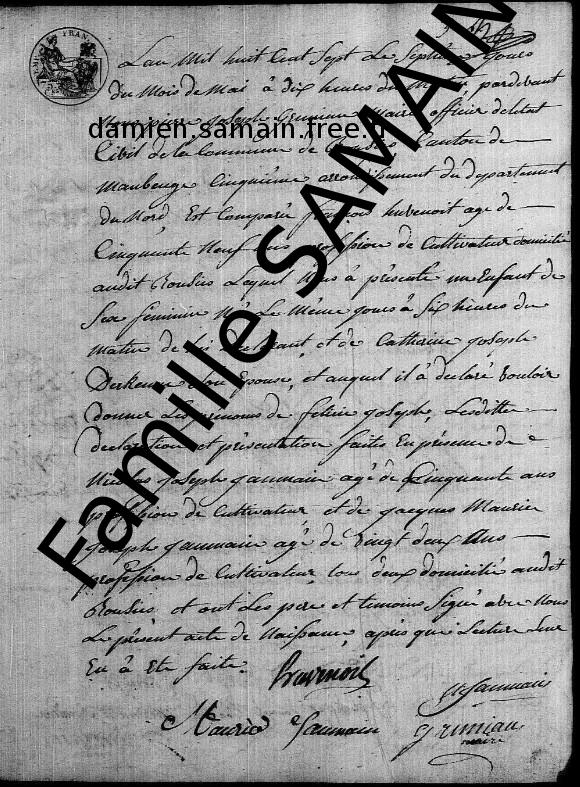 Lan Mil huit Cent Sept Le Septième jours
du Mois de Mai à dix heures du pardevant
joseph Maire officier deletat
damien.samain.free.fr
Civil de la Commune de Canton de
Maubeuge Cinquième arrondissement du departement
du Nord Est Comparu françois huvenoit age de
Cinquante Neuf ans profession de Cultivateur domicilié
audit Rousies Lequel Nous à présenté un Enfant de
Sexe féminin Né Le Même jours à Six heures du
matin de Lui declarant et de Catherine joseph
Son Epouse, et auquel il à declaré vouloir
donner Les prénoms de joseph, Lesdittes
declaration et présentation faites En présence de
Nicolas joseph gaumain agé de Cinquante ans
profession de Cultivateur et de jacques Maurice
joseph gaumain agé de vingt deux Ans
profession de Cultivateur, tous deux domicilié audit
Rousies et ont Les pere et temoins Signé avec Nous
Le présent acte de Naissance, après que Lecture Leur
En à Eté faite.
huvenoit
Maurice gaumain
maire
Famille SAMAIN